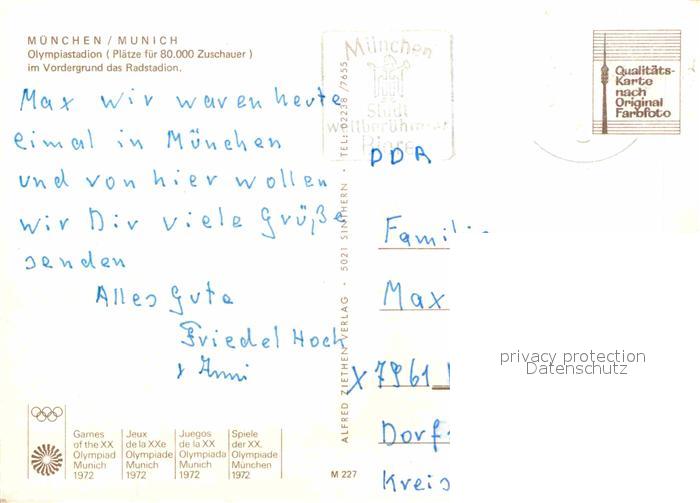 MÜNCHEN / MUNICH
Olympiastadion ( Plätze für 80.000 Zuschauer )
im Vordergrund das Radstadion.
Max wir waren heute
eimal in München
und von hier wollen
wir Dir viele Grüße
senden
Alles Gute
Friedel Hock
Anni
Games of the XX Olympiad Munich 1972
Jeux de la XXe Olympiade Munich 1972
Juegos de la XX Olympiada Munich 1972
Spiele der XX. Olympiade München 1972
ALFRED ZIETHEN VERLAG · 5021 SINTHERN · TEL: 02238 /7655
M 227
München
Stadt
weltberühmter
Biere
Qualitäts-
Karte
nach
Original
Farbfoto
DDR
Famili
Max
X 7961
Dorf
Kreis
privacy protection
Datenschutz